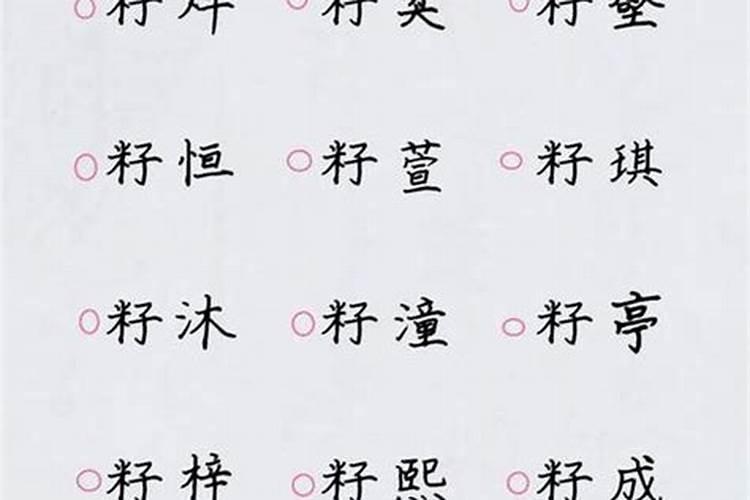 ○籽烊 ○籽昊 ○籽壑
○籽恒 ○籽萱 ○籽琪
○籽沐 ○籽潼 ○籽亭
○籽梓 ○籽熙 ○籽成